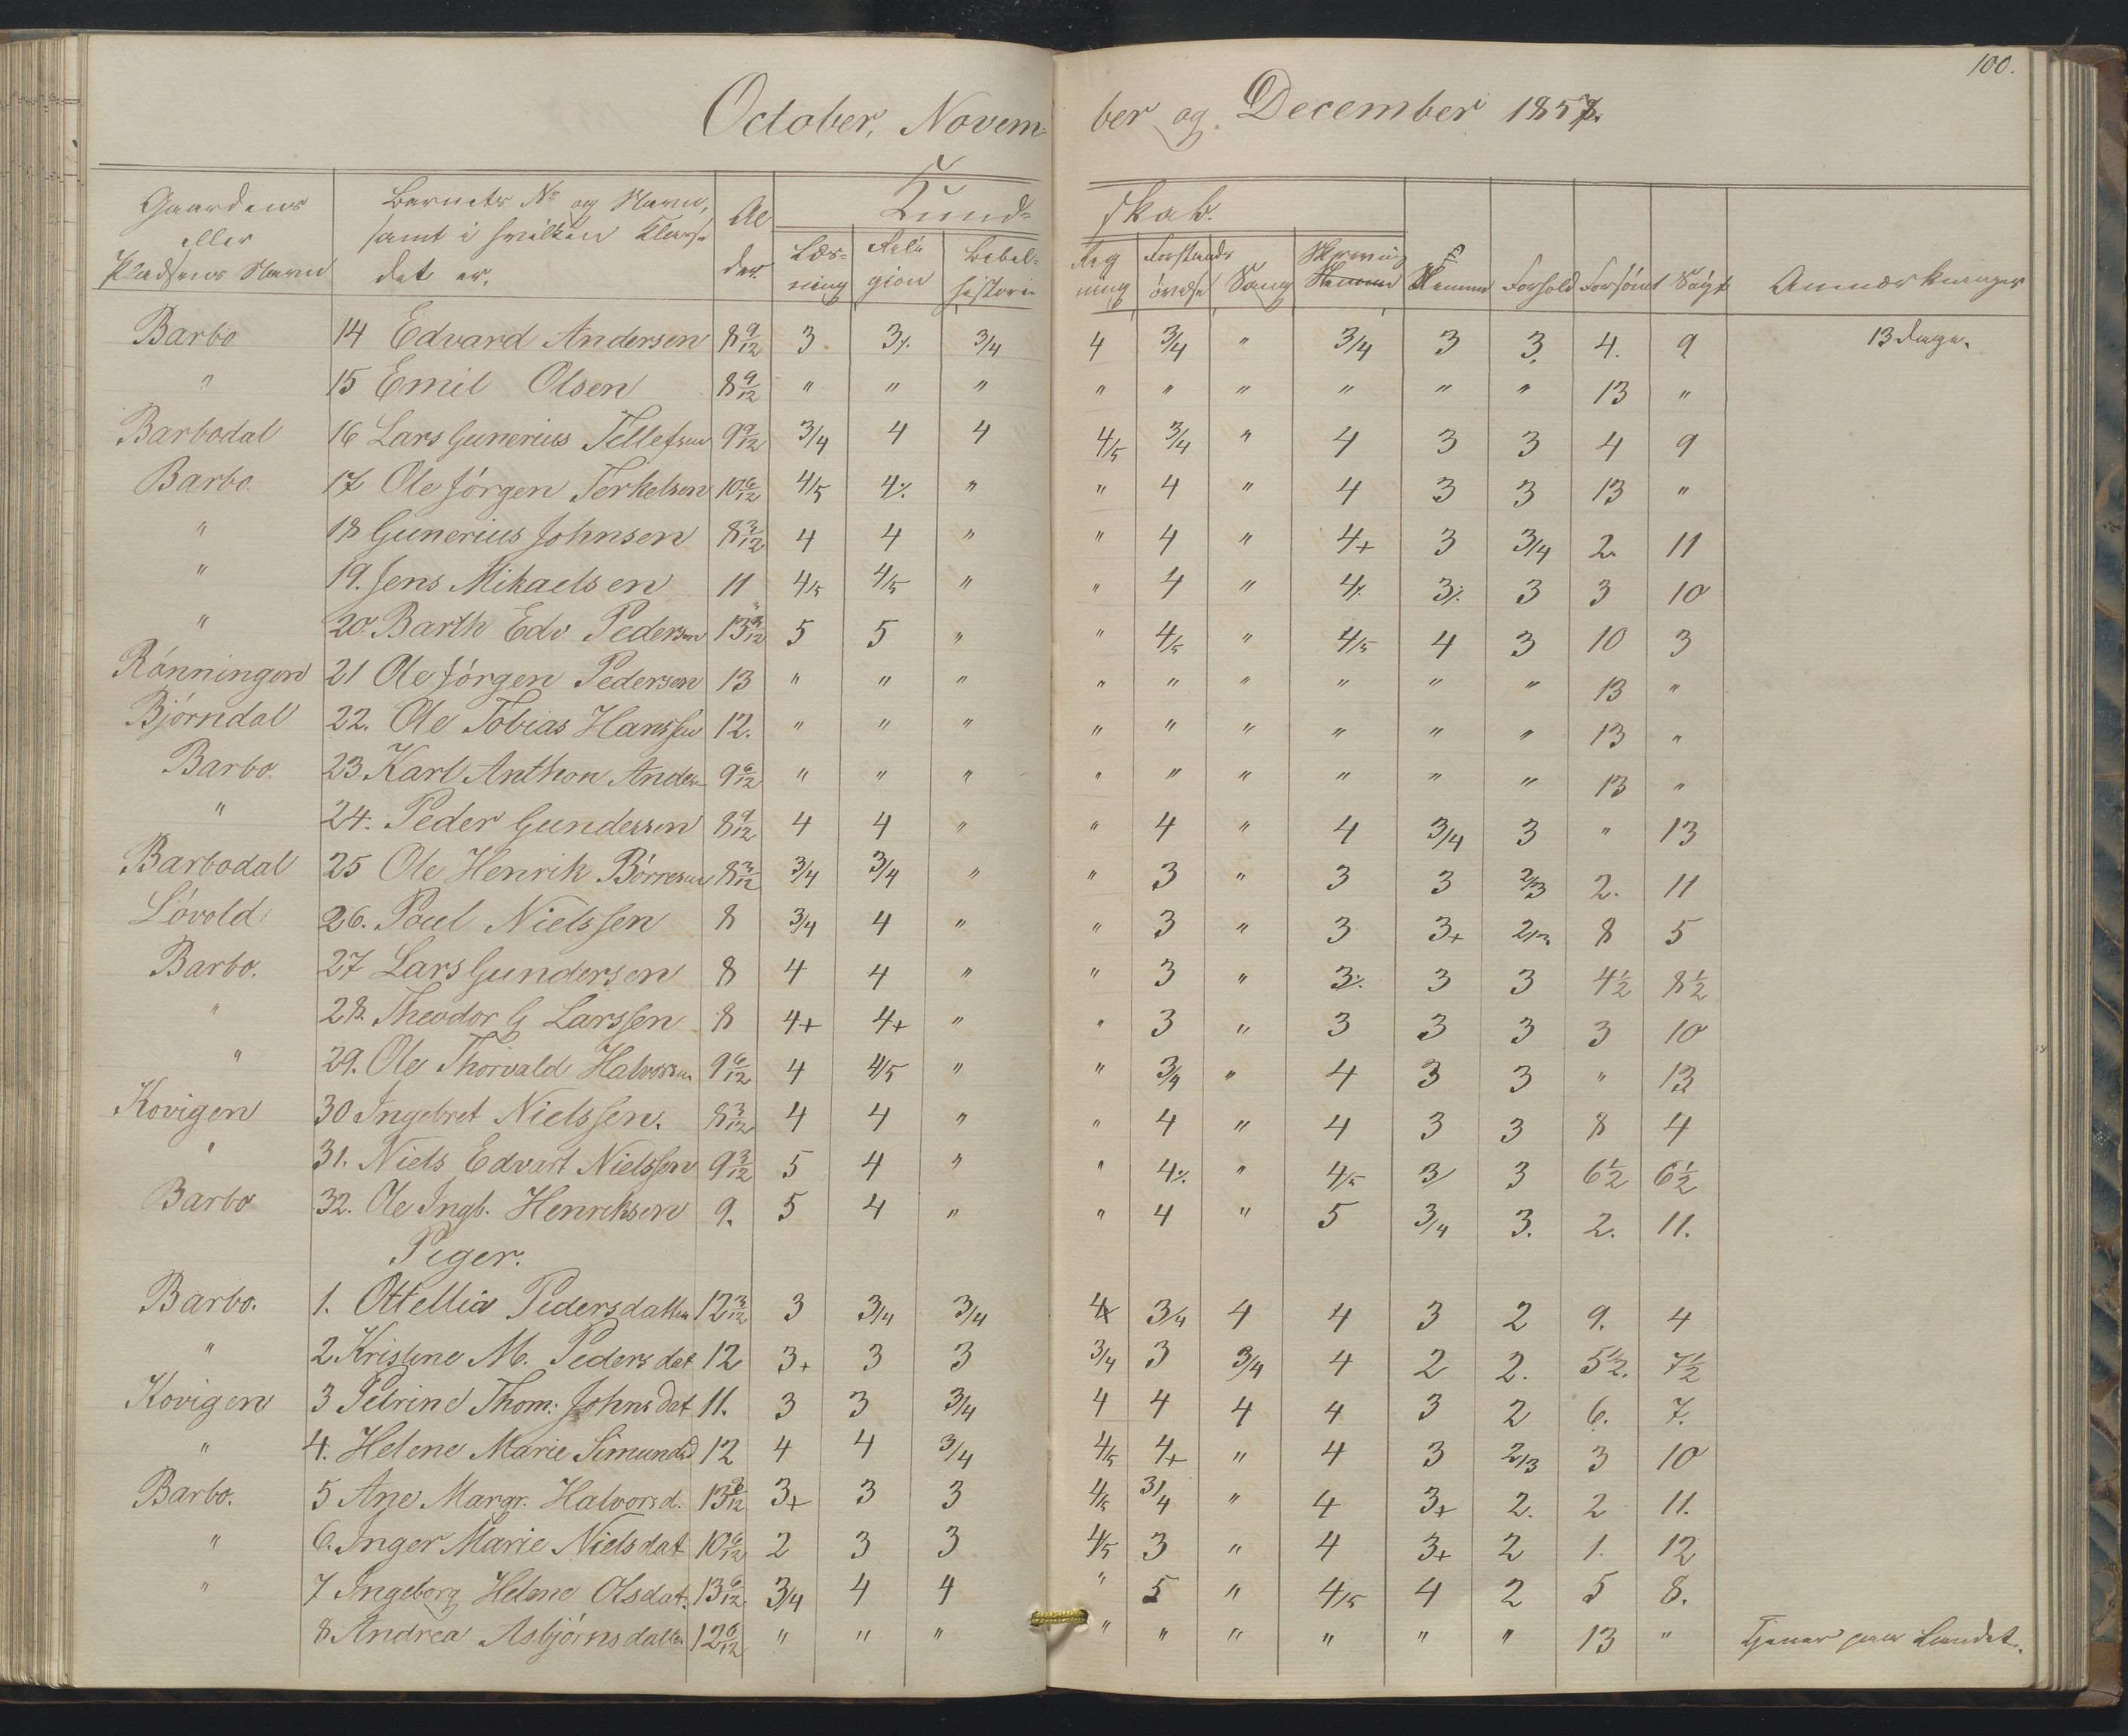 100.
October, Novem= ber og December 1857.
Kund= skab.
Gaardens eller Pladsens Navn | Barnets No og Navn, samt i hvilken Klasse det er. | Al der. | Læs= ning | Reli gion | Bibel= historie | Reg ning | Forstands øvelse | Sang | Skrivning | Nemme | Forhold | Forsømt | Søgt | Anmærkninger
Barbo 14 Edvard Andersen 8 9/12 3 3% 3/4 4 3/4 " 3/4 3 3 4. 9 13 Dage.
" 15 Emil Olsen 8 9/12 " " " " " " " " " 13 "
Barbodal 16 Lars Gunerius Tellefsen 9 9/12 3/4 4 4 4/5 3/4 " 4 3 3 4 9
Barbo 17 Ole Jörgen Terkelsen 10 6/12 4/5 4% " " 4 " 4 3 3 13 "
" 18 Gunerius Johnsen 8 3/12 4 4 " " 4 " 4+ 3 3/4 2. 11
" 19. Jens Mikaelsen 11 4/5 4/5 " " 4 " 4% 3% 3 3 10
" 20. Barth Edv Pedersen 13 9/12 5 5 " " 4/5 " 4/5 4 3 10 3
Rönningen 21 Ole Jörgen Pedersen 13 " " " " " " " " " 13 "
Björndal 22. Ole Tobias Hanssen 12. " " " " " " " " " 13 "
Barbo. 23. Karl Anthon Anders 9 6/12 " " " " " " " " " 13 "
" 24. Peder Gundersen 8 9/12 4 4 " " 4 " 4 3/4 3 " 13
Barbodal 25 Ole Henrik Börresen 8 3/12 3/4 3/4 " " 3 " 3 3 2/3 2. 11
Lövold 26. Poul Nielssen 8 3/4 4 " " 3 " 3 3+ 2/3 8 5
Barbo. 27 Lars Gundersen 8 4 4 " " 3 " 3% 3 3 4 1/2 8 1/2
" 28. Theodor G Larssen 8 4+ 4+ " " 3 " 3 3 3 3 10
" 29. Ole Thorvald Halvorsen 9 6/12 4 4/5 " " 3/4 " 4 3 3 " 13
Kovigen 30 Ingebret Nielssen. 8 3/12 4 4 " " 4 " 4 3 3 8 4
" 31. Niels Edvart Nielssen 9 3/12 5 4 " " 4% " 4/5 3 3 6 1/2 6 1/2
Barbo 32. Ole Ingb. Henriksen 9. 5 4 " " 4 " 5 3/4 3. 2. 11.
Piger.
Barbo. 1. Ottellia Pedersdatter 12 3/12 3 3/4 3/4 4 3/4 4 4 3 2 9. 4
" 2. Kristine M. Peders dat 12 3+ 3 3 3/4 3 3/4 4 2 2. 5 1/2. 7 1/2
Kovigen 3 Petrine Thom: Johns dat 11. 3 3 3/4 4 4 4 4 3 2 6. 7.
" 4. Helene Marie Simunds d 12 4 4 3/4 4/5 4+ " 4 3 2/3 3 10
Barbo. 5 Ane Margr. Halvors d. 13 3+ 3 3 4/5 3/4 " 4 3+ 2. 2 11.
" 6. Inger Marie Niels dat 10 6/12 2 3 3 4/5 3 " 4 3+ 2 1. 12
" 7 Ingeborg Helene Olsdat. 13 6/12 3/4 4 4 " 5 " 4/5 4 2 5 8.
8. Andrea Asbjörnsdatter 12 6/12 " " " " " " " " " 13 " Tjener paa Landet.